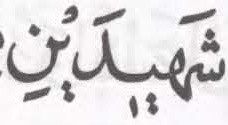 شَهِيدَيْنِ